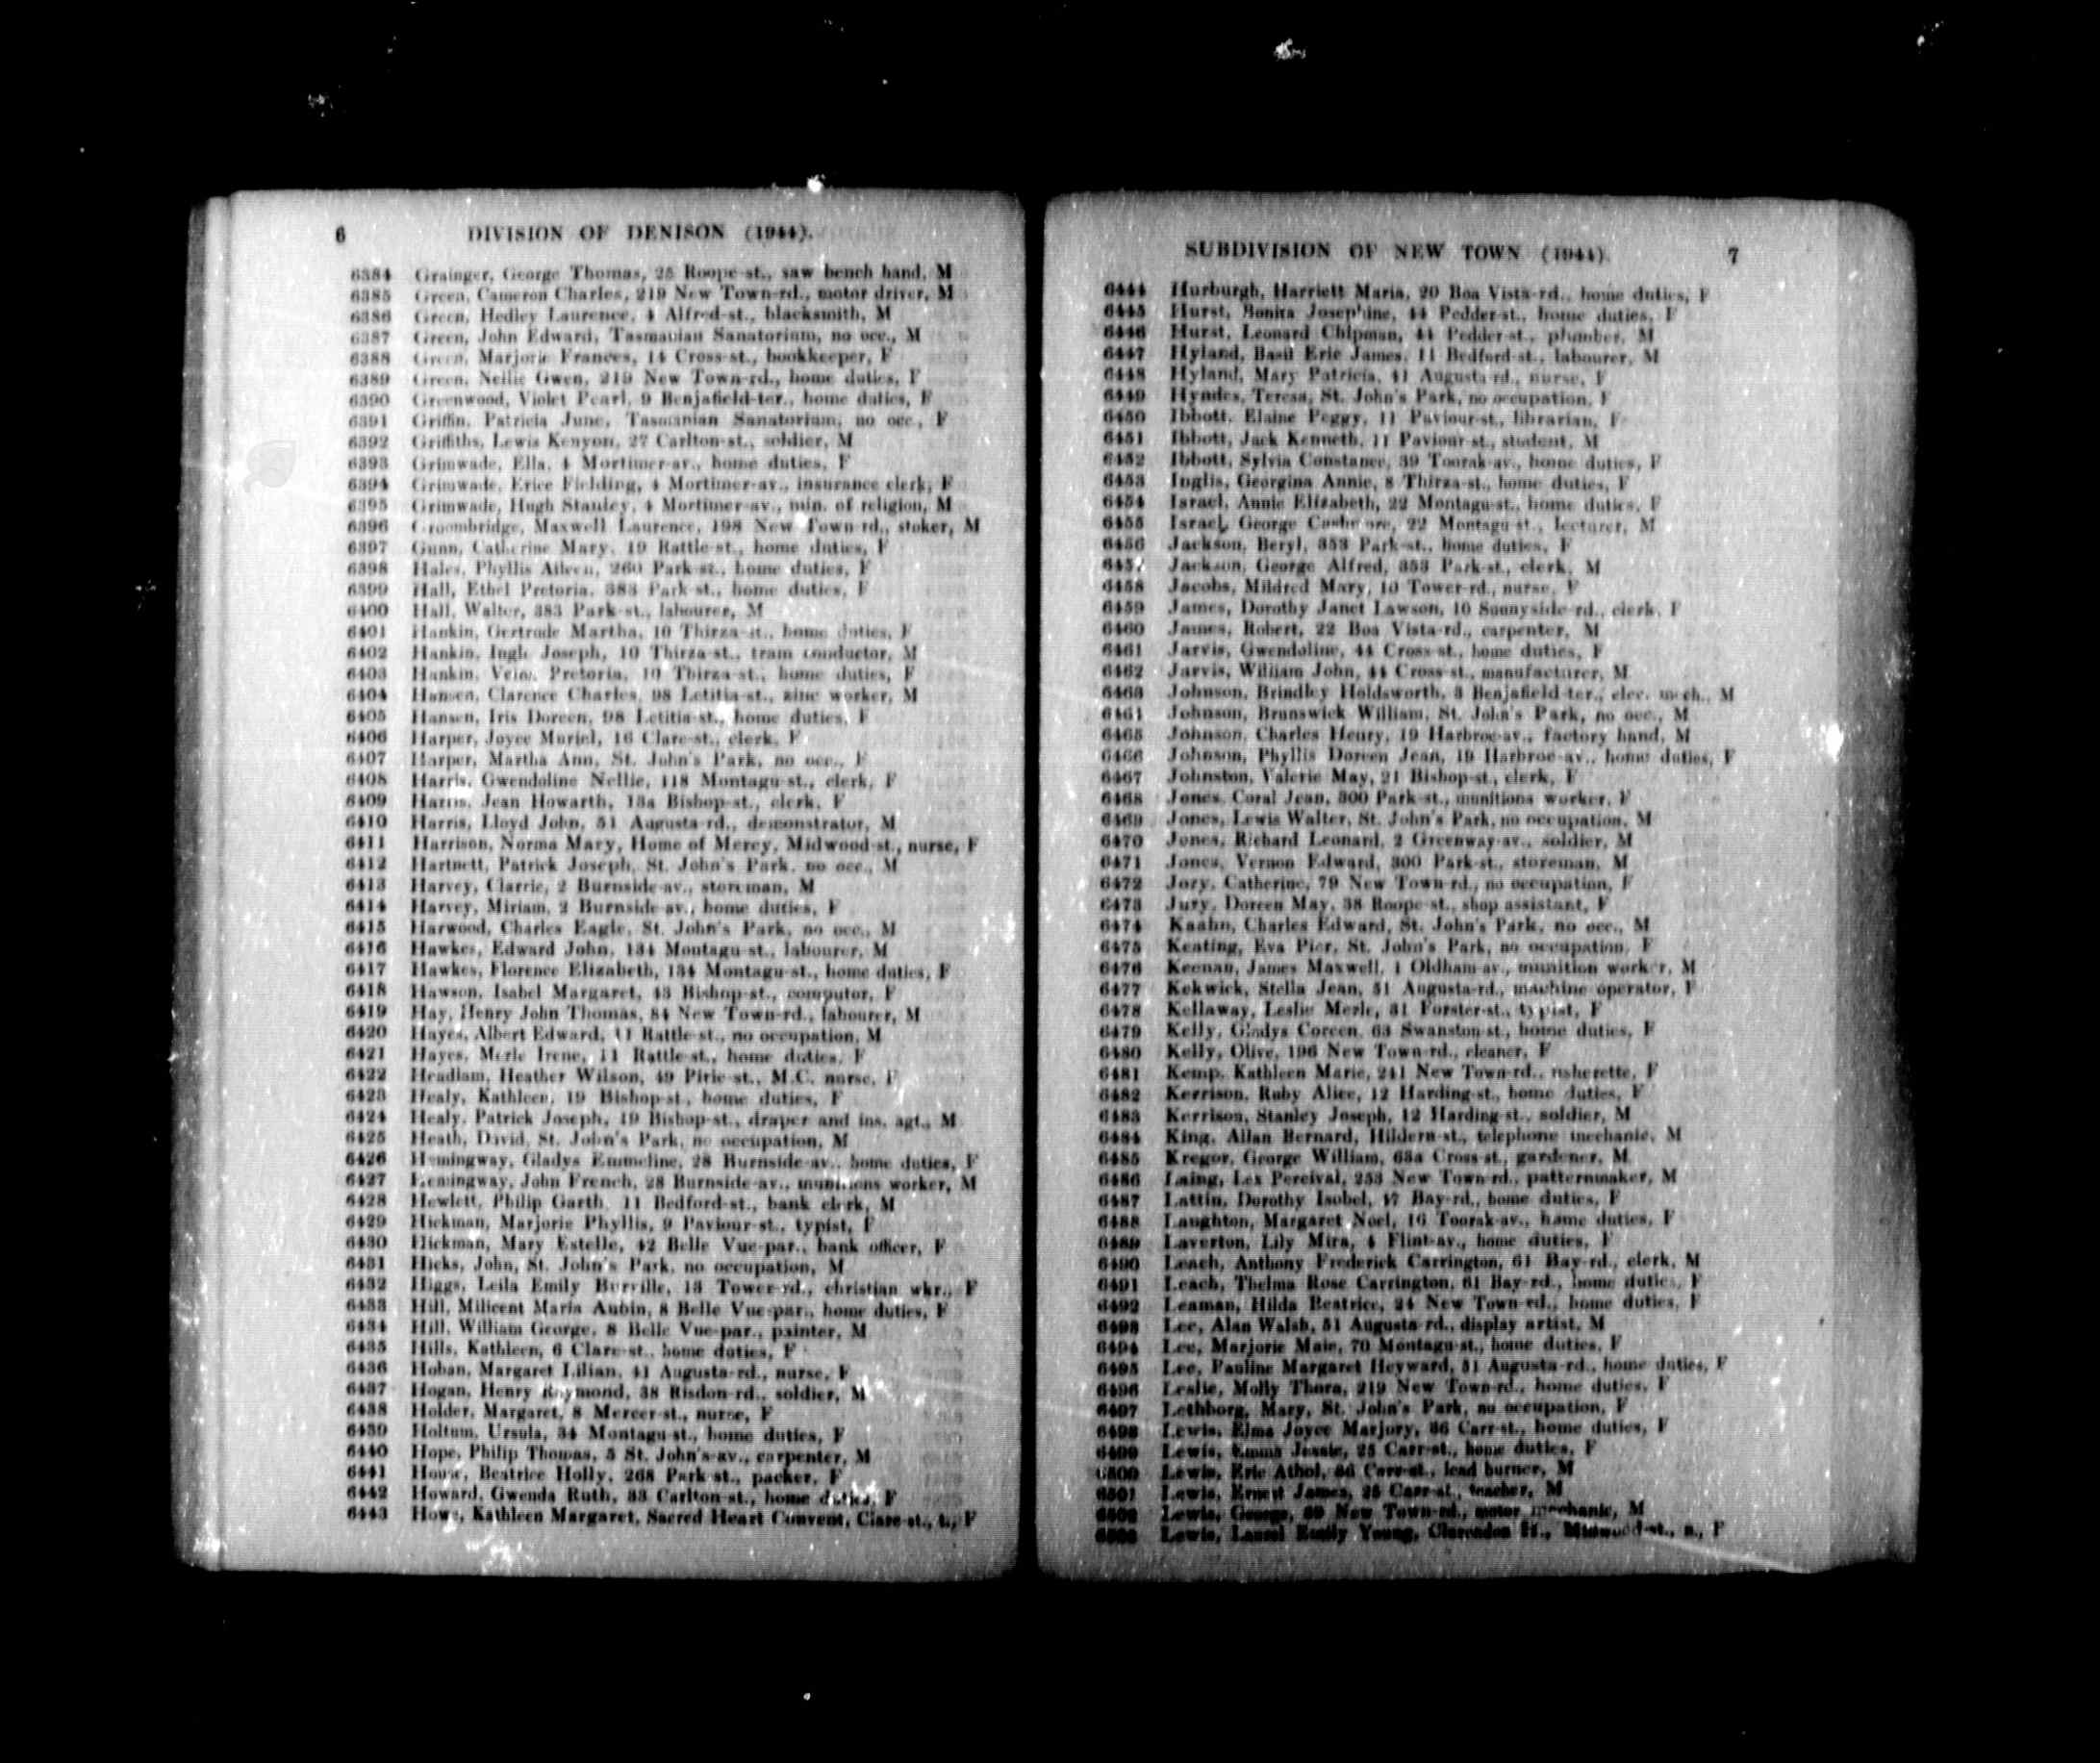 6 DIVISION OF DENISON (1944).
6384 Grainger, George Thomas, 25 Roope-st., saw bench hand, M
6385 Green, Cameron Charles, 219 New Town-rd., motor driver, M
6386 Green, Hedley Laurence, 4 Alfred-st., blacksmith, M
6387 Green, John Edward, Tasmanian Sanatorium, no occ., M
6388 Green, Marjorie Frances, 14 Cross-st., bookkeeper, F
6389 Green, Nellie Gwen, 219 New Town-rd., home duties, F
6390 Greenwood, Violet Pearl, 9 Benjafield-ter., home duties, F
6391 Griffin, Patricia June, Tasmanian Sanatorium, no occ., F
6392 Griffiths, Lewis Kenyon, 27 Carlton-st., soldier, M
6393 Grimwade, Ella, 4 Mortimer-av., home duties, F
6394 Grimwade, Erice Fielding, 4 Mortimer-av., insurance clerk, F
6395 Grimwade, Hugh Stanley, 4 Mortimer-av., min. of religion, M
6396 Groombridge, Maxwell Laurence, 198 New Town-rd., stoker, M
6397 Gunn, Catherine Mary, 19 Rattle-st., home duties, F
6398 Hales, Phyllis Aileen, 260 Park-st., home duties, F
6399 Hall, Ethel Pretoria, 383 Park-st., home duties, F
6400 Hall, Walter, 383 Park-st., labourer, M
6401 Hankin, Gertrude Martha, 10 Thirza-st., home duties, F
6402 Hankin, Ingle Joseph, 10 Thirza-st., tram conductor, M
6403 Hankin, Pretoria, 10 Thirza-st., home duties, F
6404 Hansen, Clarence Charles, 98 Letitia-st., zinc worker, M
6405 Hansen, Iris Doreen, 98 Letitia-st., home duties, F
6406 Harper, Joyce Muriel, 16 Clare-st., clerk, F
6407 Harper, Martha Ann, St. John's Park, no occ., F
6408 Harris, Gwendoline Nellie, 118 Montagu-st., clerk, F
6409 Harris, Jean Howarth, 13a Bishop-st., clerk, F
6410 Harris, Lloyd John, 51 Augusta-rd., demonstrator, M
6411 Harrison, Norma Mary, Home of Mercy, Midwood-st., nurse, F
6412 Hartnett, Patrick Joseph, St. John's Park, no occ., M
6413 Harvey, Clarrie, 2 Burnside-av., storeman, M
6414 Harvey, Miriam, 2 Burnside-av., home duties, F
6415 Harwood, Charles Eagle, St. John's Park, no occ., M
6416 Hawkes, Edward John, 134 Montagu-st., labourer, M
6417 Hawkes, Florence Elizabeth, 134 Montagu-st., home duties, F
6418 Hawson, Isabel Margaret, 43 Bishop-st., computor, F
6419 Hay, Henry John Thomas, 84 New Town-rd., labourer, M
6420 Hayes, Albert Edward, 11 Rattle-st., no occupation, M
6421 Hayes, Merle Irene, 11 Rattle-st., home duties, F
6422 Headlam, Heather Wilson, 49 Pirie-st., M.C. nurse, F
6423 Healy, Kathleen, 19 Bishop-st., home duties, F
6424 Healy, Patrick Joseph, 19 Bishop-st., draper and ins. agt., M
6425 Heath, David, St. John's Park, no occupation, M
6426 Hemingway, Gladys Emmeline, 28 Burnside-av., home duties, F
6427 Hemingway, John French, 28 Burnside-av., munitions worker, M
6428 Hewlett, Philip Garth, 11 Bedford-st., bank clerk, M
6429 Hickman, Marjorie Phyllis, 9 Paviour-st., typist, F
6430 Hickman, Mary Estelle, 42 Belle Vue-par., bank officer, F
6431 Hicks, John, St. John's Park, no occupation, M
6432 Higgs, Leila Emily Burville, 13 Tower-rd., christian wkr., F
6433 Hill, Milicent Maria Aubin, 8 Belle Vue-par., home duties, F
6434 Hill, William George, 8 Belle Vue-par., painter, M
6435 Hills, Kathleen, 6 Clare-st., home duties, F
6436 Hoban, Margaret Lilian, 41 Augusta-rd., nurse, F
6437 Hogan, Henry Raymond, 38 Risdon-rd., soldier, M
6438 Holder, Margaret, 8 Mercer-st., nurse, F
6439 Holtum, Ursula, 34 Montagu-st., home duties, F
6440 Hope, Philip Thomas, 5 St. John's-av., carpenter, M
6441 House, Beatrice Holly, 268 Park-st., packer, F
6442 Howard, Gwenda Ruth, 33 Carlton-st., home duties, F
6443 Howe, Kathleen Margaret, Sacred Heart Convent, Clare-st., t., F
SUBDIVISION OF NEW TOWN (1944). 7
6444 Hurburgh, Harriett Maria, 20 Boa Vista-rd., home duties, F
6445 Hurst, Bonita Josephine, 44 Pedder-st., home duties, F
6446 Hurst, Leonard Chipman, 44 Pedder-st., plumber, M
6447 Hyland, Basil Eric James, 11 Bedford-st., labourer, M
6448 Hyland, Mary Patricia, 41 Augusta-rd., nurse, F
6449 Hyndes, Teresa, St. John's Park, no occupation, F
6450 Ibbott, Elaine Peggy, 11 Paviour-st., librarian, F
6451 Ibbott, Jack Kenneth, 11 Paviour-st., student, M
6452 Ibbott, Sylvia Constance, 39 Toorak-av., home duties, F
6453 Inglis, Georgina Annie, 8 Thirza-st., home duties, F
6454 Israel, Annie Elizabeth, 22 Montagu-st., home duties, F
6455 Israel, George 22 Montagu-st., lecturer, M
6456 Jackson, Beryl, 353 Park-st., home duties, F
6457 Jackson, George Alfred, 353 Park-st., clerk, M
6458 Jacobs, Mildred Mary, 10 Tower-rd., nurse, F
6459 James, Dorothy Janet Lawson, 10 Sunnyside-rd., clerk, F
6460 James, Robert, 22 Boa Vista-rd., carpenter, M
6461 Jarvis, Gwendoline, 44 Cross-st., home duties, F
6462 Jarvis, William John, 44 Cross-st., manufacturer, M
6463 Johnson, Brindley Holdsworth, 3 Benjafield-ter., elec. mech., M
6464 Johnson, Brunswick William, St. John's Park, no occ., M
6465 Johnson, Charles Henry, 19 Harbroe-av., factory hand, M
6466 Johnson, Phyllis Doreen Jean, 19 Harbroe-av., home duties, F
6467 Johnston, Valerie May, 21 Bishop-st., clerk, F
6468 Jones, Coral Jean, 300 Park-st., munitions worker, F
6469 Jones, Lewis Walter, St. John's Park, no occupation, M
6470 Jones, Richard Leonard, 2 Greenway-av., soldier, M
6471 Jones, Vernon Edward, 300 Park-st., storeman, M
6472 Jory, Catherine, 79 New Town-rd., no occupation, F
6473 Jury, Doreen May, 38 Roope-st., shop assistant, F
6474 Kaahn, Charles Edward, St. John's Park, no occ., M
6475 Keating, Eva Pier, St. John's Park, no occupation, F
6476 Keenan, James Maxwell, 1 Oldham-av., munition worker, M
6477 Kekwick, Stella Jean, 51 Augusta-rd., machine operator, F
6478 Kellaway, Leslie Merle, 31 Forster-st., typist, F
6479 Kelly, Gladys Coreen, 63 Swanston-st., home duties, F
6480 Kelly, Olive, 196 New Town-rd., cleaner, F
6481 Kemp, Kathleen Marie, 241 New Town-rd., usherette, F
6482 Kerrison, Ruby Alice, 12 Harding-st., home duties, F
6483 Kerrison, Stanley Joseph, 12 Harding-st., soldier, M
6484 King, Allan Bernard, Hildern-st., telephone mechanic, M
6485 Kregor, George William, 63a Cross-st., gardener, M
6486 Laing, Lex Percival, 253 New Town-rd., patternmaker, M
6487 Lattin, Dorothy Isobel, 47 Bay-rd., home duties, F
6488 Laughton, Margaret Noel, 16 Toorak-av., home duties, F
6489 Laverton, Lily Mira, 4 Flint-av., home duties, F
6490 Leach, Anthony Frederick Carrington, 61 Bay-rd., clerk, M
6491 Leach, Thelma Rose Carrington, 61 Bay-rd., home duties, F
6492 Leaman, Hilda Beatrice, 24 New Town-rd., home duties, F
6493 Lee, Alan Walsh, 51 Augusta-rd., display artist, M
6494 Lee, Marjorie Main, 70 Montagu-st., home duties, F
6495 Lee, Pauline Margaret Heyward, 51 Augusta-rd., home duties, F
6496 Leslie, Molly Thora, 219 New Town-rd., home duties, F
6497 Lethborg, Mary, St. John's Park, no occupation, F
6498 Lewis, Elma Joyce Marjory, 36 Carr-st., home duties, F
6499 Lewis, Emma Jessie, 25 Carr-st., home duties, F
6500 Lewis, Eric Athol, 36 Carr-st., lead burner, M
6501 Lewis, Ernest James, 25 Carr-st., teacher, M
6502 Lewis, George, 69 New Town-rd., motor mechanic, M
6503 Lewis, Laurel Emily Young, Clarendon H., Midwood-st., n., F